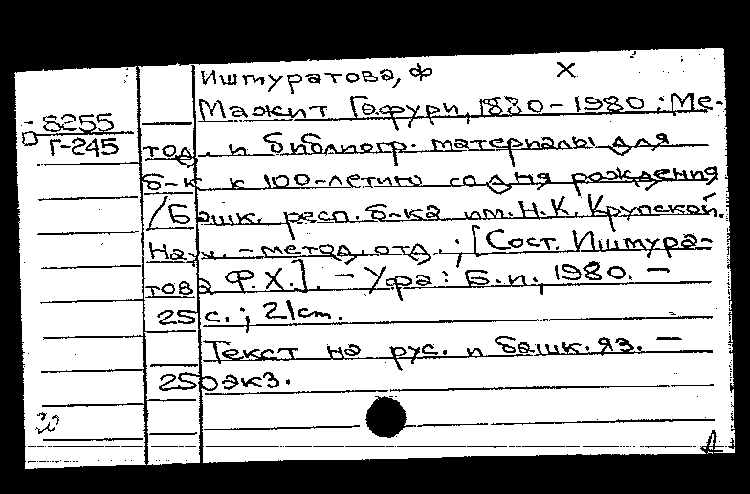 Иштуратова, Ф Х
Мажит Гафури, 1880-1980 : Ме-
8255
Г-245
тод. и библиогр. материалы для
б-к к 100-летию со дня рождения
/Башк. респ. б-ка им. Н.К. Крупской.
Науч.-метод. отд. ; [Сост. Иштура-
това Ф.Х.]. - Уфа: Б.и., 1980. -
25 с. ; 21 cm.
Текст на рус. и башк. яз. -
250 экз.